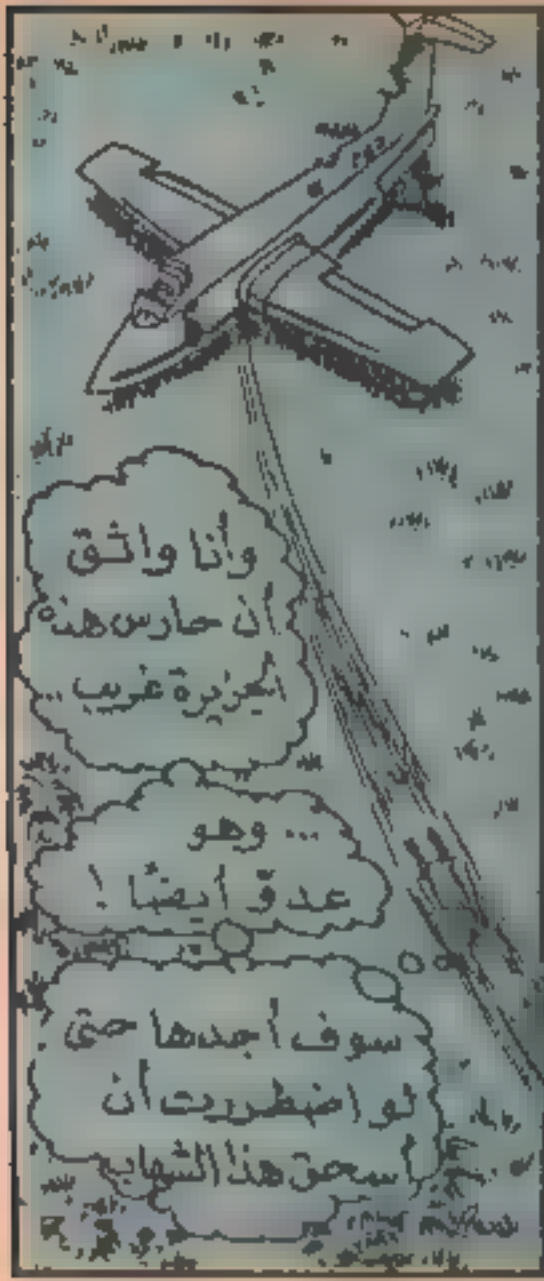 وأنا واثق
أن حارس هذه
الجزيرة غريب ...
... وهو
عدوّ أيضًا !
سوف أجدها حتى
لو اضطررت أن
أسحق هذا الشهاب